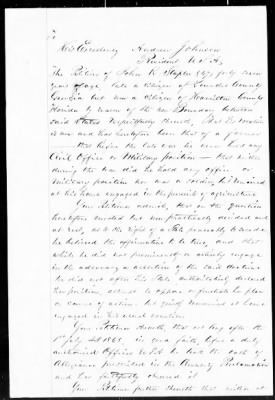 His Excellency Andrew Johnson
President U.S.A.
The Petition of John W. Staples aged forty seven
years of age, late a Citizen of Lowndes County
Georgia but now a Citizen of Hamilton County
Florida by reason of the new Boundary between
said States Respectfully sheweth, that his vocation
is now and has heretofore been that of a farmer
That before the late war he never held any
Civil Office or Military position — that
during the war he did he hold any office or
Military position nor was a soldier but remained
at his home engaged in the pursuits of agriculture
Your Petitioner admits, that on the question
heretofore mooted but now practically decided and
at rest, as to the right of a State peaceably to secede
he believed the affirmative to be true, and that
while he did not prominently or actively engage
in the advocacy or assertion of the said doctrine
he did not after his State authoritatively declared
her position, attempt to oppose or forestall her plan
or course of action. He quietly remained at home
engaged in his usual vocation
Your Petitioner sheweth, that not long after the
1st July A.D. 1865, in good faith, before a duly
authorized Officer U.S.A. he took the oath of
Allegiance prescribed in the Amnesty Proclamation
and has faithfully observed it.
Your Petitioner further sheweth that neither at